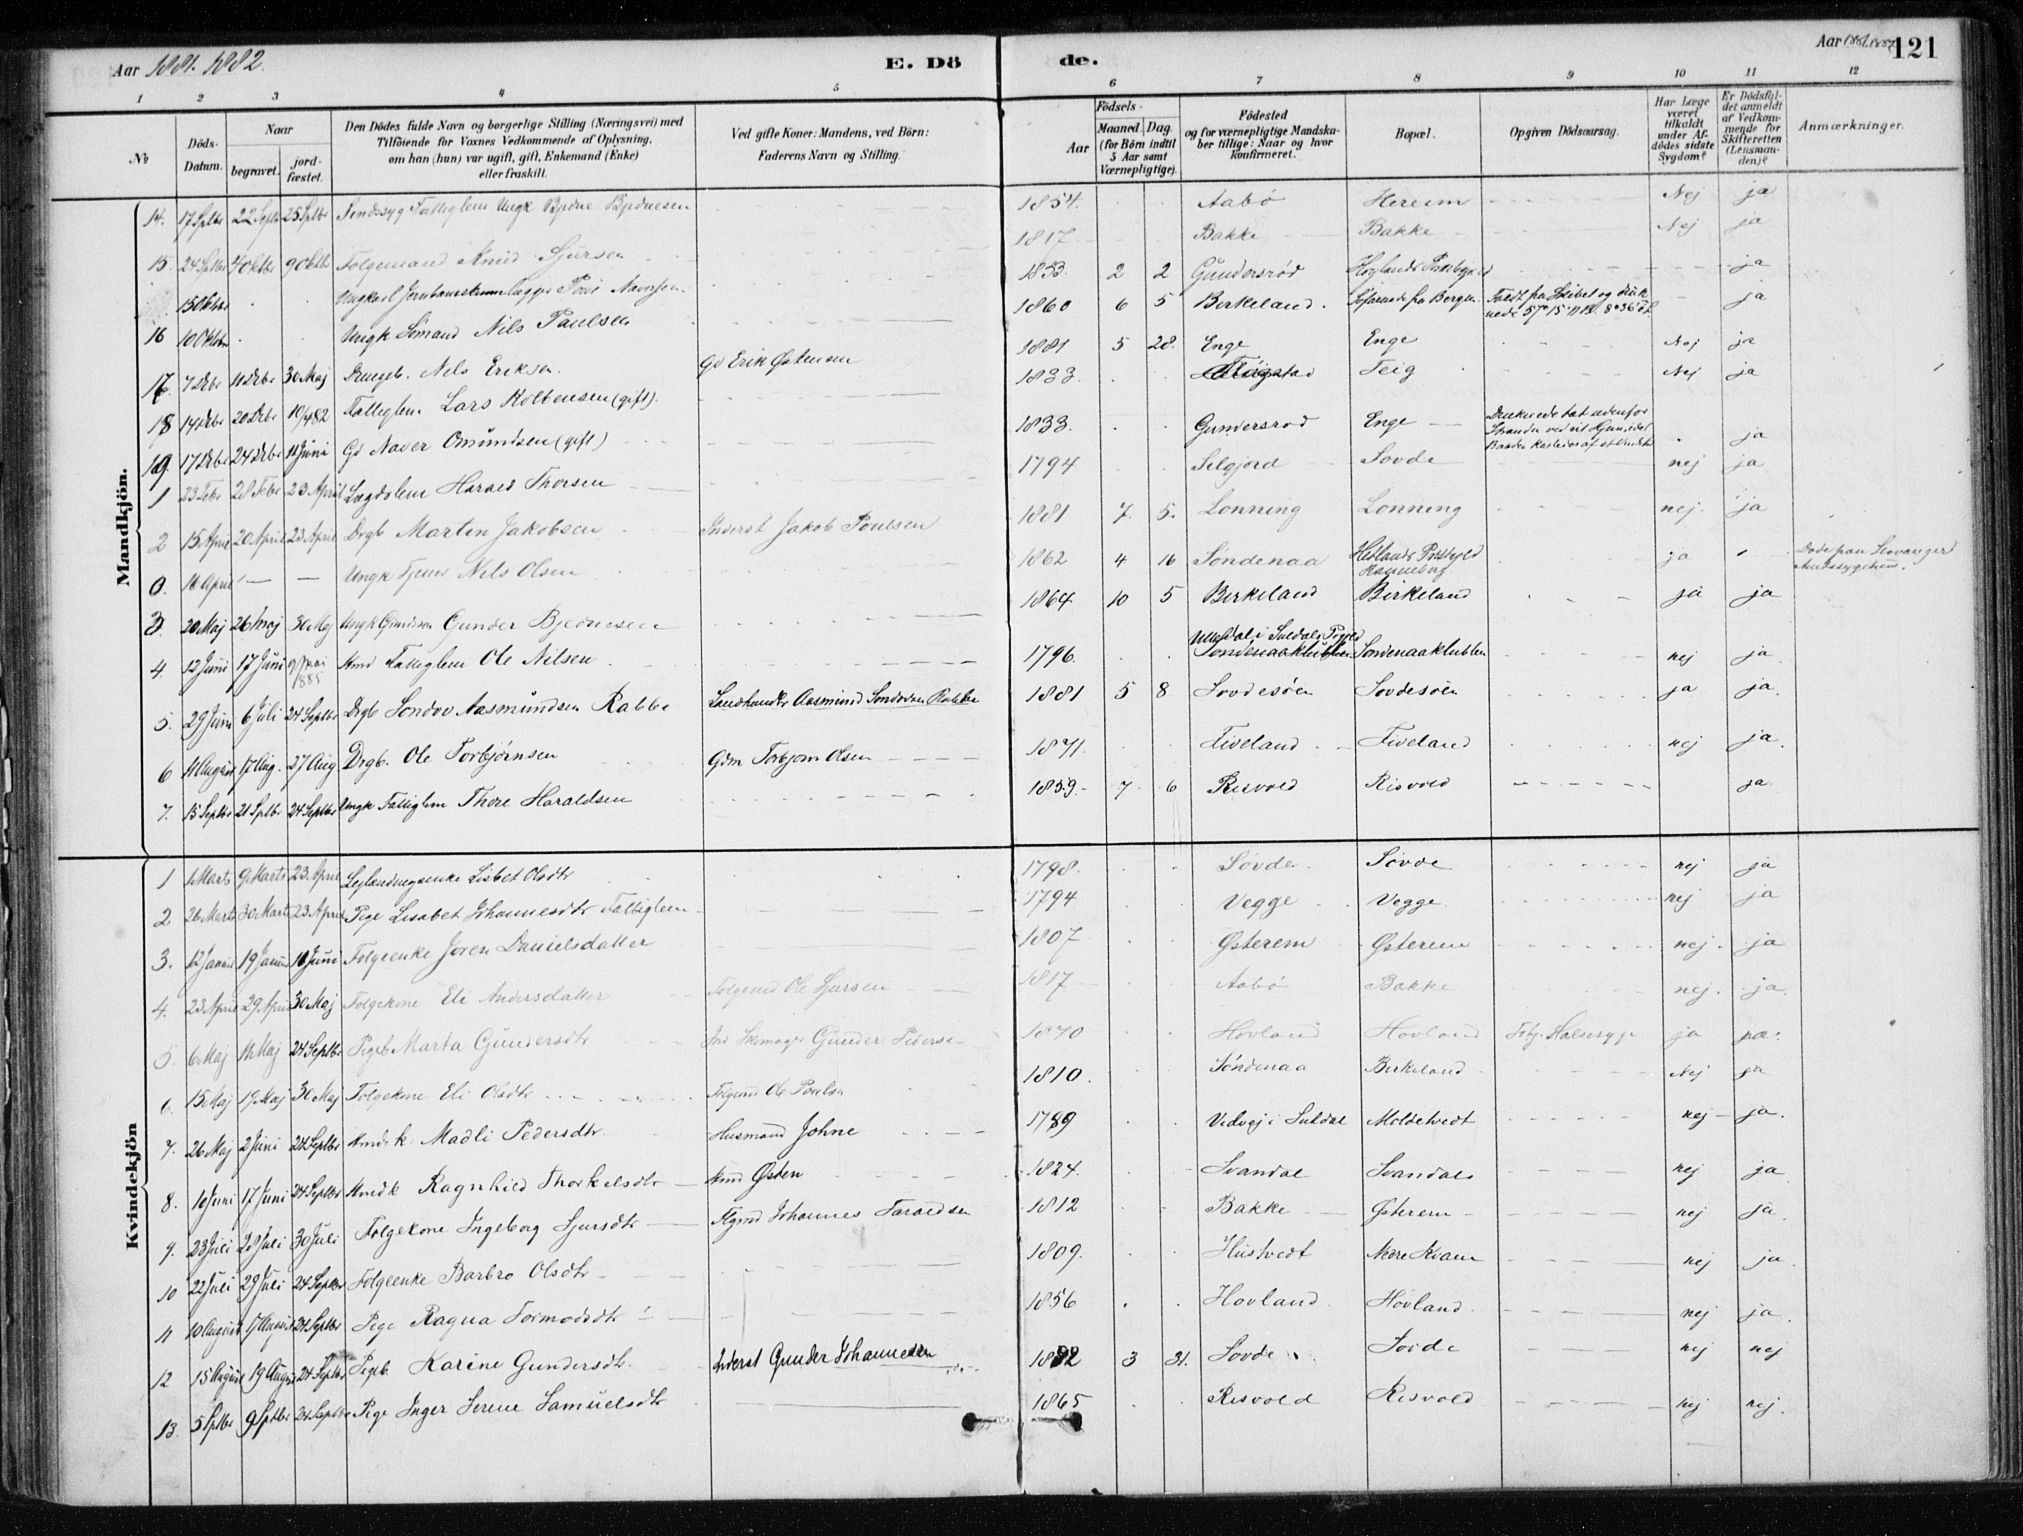 Aar 1881. 1882.
E. Dö
de.
Aar
121
1 2 3 4 5 6 7 8 9 10 11 12
No
Döds-Datum.
Naar
begravet.
jord-fæstet.
Den Dödes fulde Navn og borgerlige Stilling (Næringsvei) med
Tilföiende for Voxnes Vedkommende af Oplysning,
om han (hun) var ugift, gift, Enkemand (Enke)
eller fraskilt.
Ved gifte Koner: Mandens, ved Börn:
Faderens Navn og Stilling.
Födsels-
Aar
Maaned. Dag.
(for Börn indtil
5 Aar samt
Værnepligtige).
Födested
og for værnepligtige Mandska-
ber tillige: Naar og hvor
konfirmeret.
Bopæl.
Opgiven Dödsaarsag.
Har Læge
været
tilkaldt
under Af-
dödes sidste
Sygdom?
Er Dödsfal-
det anmeldt
af Vedkom-
mende for
Skifteretten
(Lensman-
den)?
Anmærkninger.
Mandkjön.
14. 17 Sptbr 22 Septbr 25 Sptbr Sindssyg Fattiglem Ungk Bjedne Bjednesen 1854. Aabø Hereim Nej ja
15. 24 Sptbr 4 Oktbr 9 Oktbr Folgemand Knud Sjursen 1817 Bakke Bakke Nej ja
15 Oktbr Ungkarl 1853. 2 2 Gundersrød Høglands ja
16 10 Oktbr Ungk Sømand Nils Paulsen 1860 6 5 Birkeland. Søfarende fra Bergen Faldt fra Skibet og druk
nede 57° 15' ja
17. 7 Dcbr 11 Dcbr 30 Maj Drengb. Nels Eriksen Gd Erik Østensen 1881 5 28. Enge Enge Nej ja
18 14 Dcbr 20 Dcbr 10/4 82 Fattiglem Lars Kolbensen (gift). 1833. Teig Nej ja
19. 17 Dcbr 24 Dcbr 11 Juni Gd Naver Omundsen (gift) 1833. Gundersrød Enge Druknede tæt udenfor
Stranden ja
1 23 Febr 28 Febr 23 April Lægdslem Harald Thorsen 1794 Selgjord Sovde nej ja
2 15 April 20 April 23 April Drgb Martin Jakobsen Inderst Jakob Poulsen 1881 7. 5. Lonning Lonning nej. ja
0. 16 April — — Ungk Tjener Nils Olsen 1862 4 16 Søndenaa Hetlands Præstegjeld ja Døde paa Stavanger
3. 20 Maj 26 Maj 30 Maj Ungk Gunder Bjednesen 1864 10 5 Birkeland Birkeland ja ja
4. 12 Juni 17 Juni 9 Mai
1885 Hmd Fattiglem Ole Nilsen. 1796. i Suldals
Søndenaaklubben Søndenaaklubben nej ja.
5. 29 Juni 6 Juli 24 Septbr Drgb Sondov Aasmundsen Rabbe Landhandler Aasmund Sondovsen Rabbe 1881 5 8 Sovdesøen Sovdesøen ja ja.
6 11 August 17 Aug. 27 Aug Drgb. Ole Torbjørnsen Gdm Torbjørn Olsen 1871. Fiveland Fiveland nej ja.
7. 15 Septbr 21 Sptbr 24 Septbr Ungk Fattiglem Thore Haraldsen 1859. 7 6 Risvold Risvold ja
Kvindekjön
1 4 Marts 9 Marts 23 April Leglandingsenke Lisbet Olsdtr 1798. Søvde. Søvde nej ja
2 26 Marts 30 Marts 23 April Pige Lisabet Johannesdtr Fattiglem 1794 Vegge Vegge. nej ja
3. 12 Januar 19 Januar 11 Juni Folgeenke Joren Danielsdatter 1807 Østerem Østerem nej. ja
4. 23 April 29 April 30 Maj Folgekone Eli Andersdatter Folgemd Ole Sjursen 1817 Aabø Bakke nej. ja.
5. 6 Maj 11 Maj 24 Septbr Pigeb Marta Gundersdtr Ind Skomager Gunder Peders 1870 Hovland Hovland Halsesyge ja ja.
6. 15 Maj 19 Maj 30 Maj Folgekone Eli Olsdtr Folgemd Ole Poulsn 1810. Søndenaa Birkeland Nej ja
7. 26 Maj 2 Juni 24 Septbr Hmdk. Madli Pedersdtr. Husmand Johne 1789 Vidvej i Suldal Moldetvedt nej ja.
8. 10 Juni 17 Juni 24 Septbr Hmdk Ragnhild Thorkelsdtr Hmd Østen 1824. Svandal Svandal nej ja
9. 23 Juli 28 Juli 30 Juli Folgekone Ingeborg Sjursdtr Flgmd Johannes Taraldsen 1812 Bakke Østerem nej ja.
10 22 Juli 29 Juli 24 Septbr Folgeenke Barbro Olsdtr 1809. Hustvedt Nedre Kvam nej ja.
11 10 August 17 August 24 Septbr Pige Ragna Tormodsdtr 1856 Hovland. Hovland. nej ja.
12 15 August 19 August 24 Septbr Pigeb. Karine Gundersdtr. Inderst Gunder Johannesen 1882 3 31. Sovde. Sovde nej nej
13. 5 Sptbr 9 Sptbr 24 Septbr Pige Inger Serene Samuelsdtr 1865 Risvold Risvold nej nej.